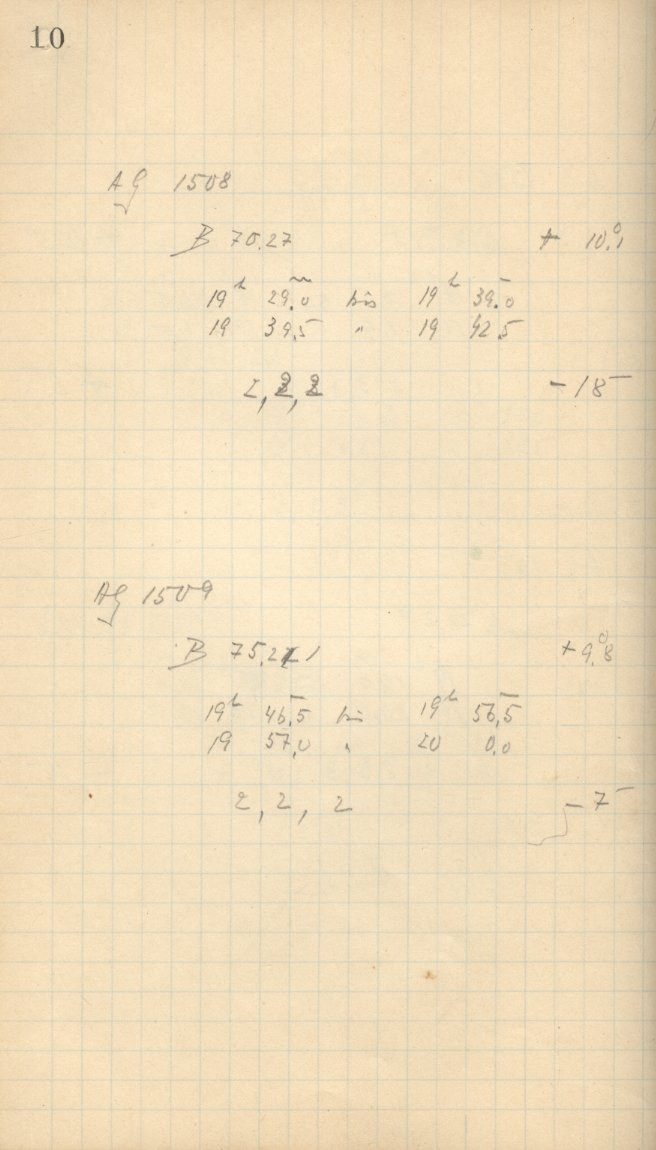 10
AG 1508
B 70.27 + 10°,1
19h 29m,0 bis 19h 39m,0
19 39,5 " 19 42,5
2, 2, 2 - 18m
AG 1509
B 75.21 + 9°,8
19h 46m,5 bis 19h 56m,5
19 57,0 " 20 0,0
2, 2, 2 - 7m